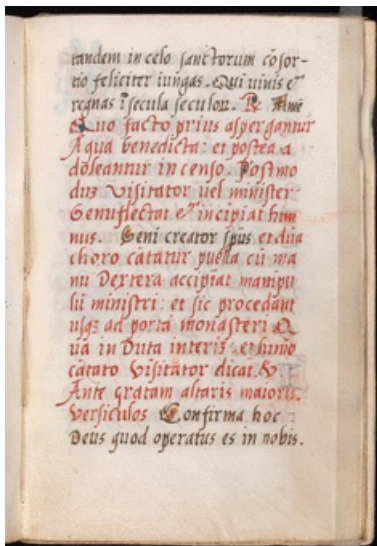 tandem in celo sanctorum cõsor-
tio feliciter iungas. Qui uiuis et
regnas ĩ secula seculorꝝ. ℟. Amẽ
Quo facto prius aspergantur
Aqua benedicta: et postea a
doleantur incenso. Postmo
duʒ Visitator uel minister
Genuflectat et incipiat him
nus. Veni creator spũs et dũa
choro cãtatur puella cũ ma
nu Dextera accipiat manipu
lii ministri: et sic procedant
usqʒ ad portã monasteri Q
ua in Duta interiʒ et himno
cãtato Visitator dicat. ℣
Ante gratam altaris maioris.
Versiculos Confirma hoc
Deus quod operatus es in nobis.